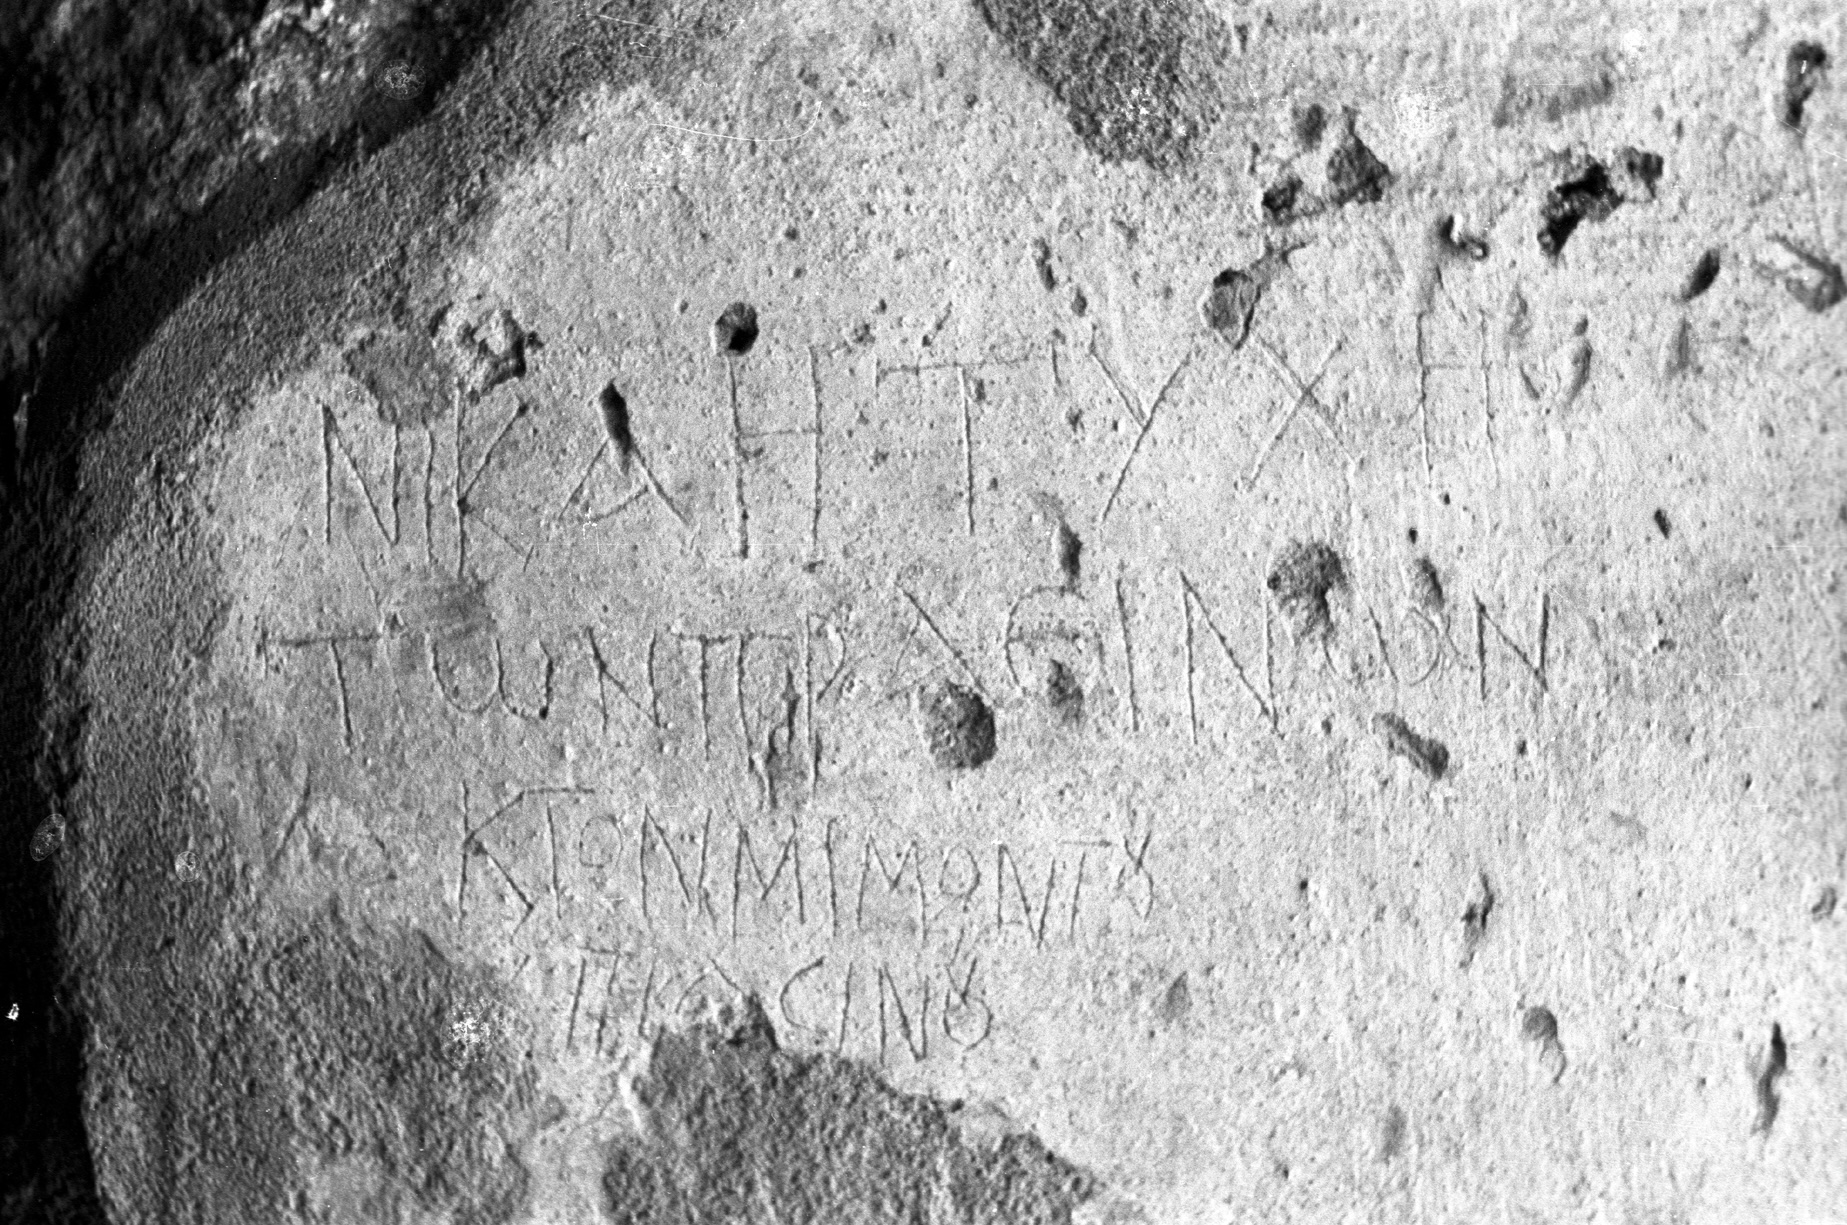 ΝΙΚΑΗΤΥΧΗ
ΤΩΝΠΡΑϹΙΝΩΝ
ΚΤΟΝΜΙΜΟΝΤȢ
ΠΡΑϹΙΝȢ